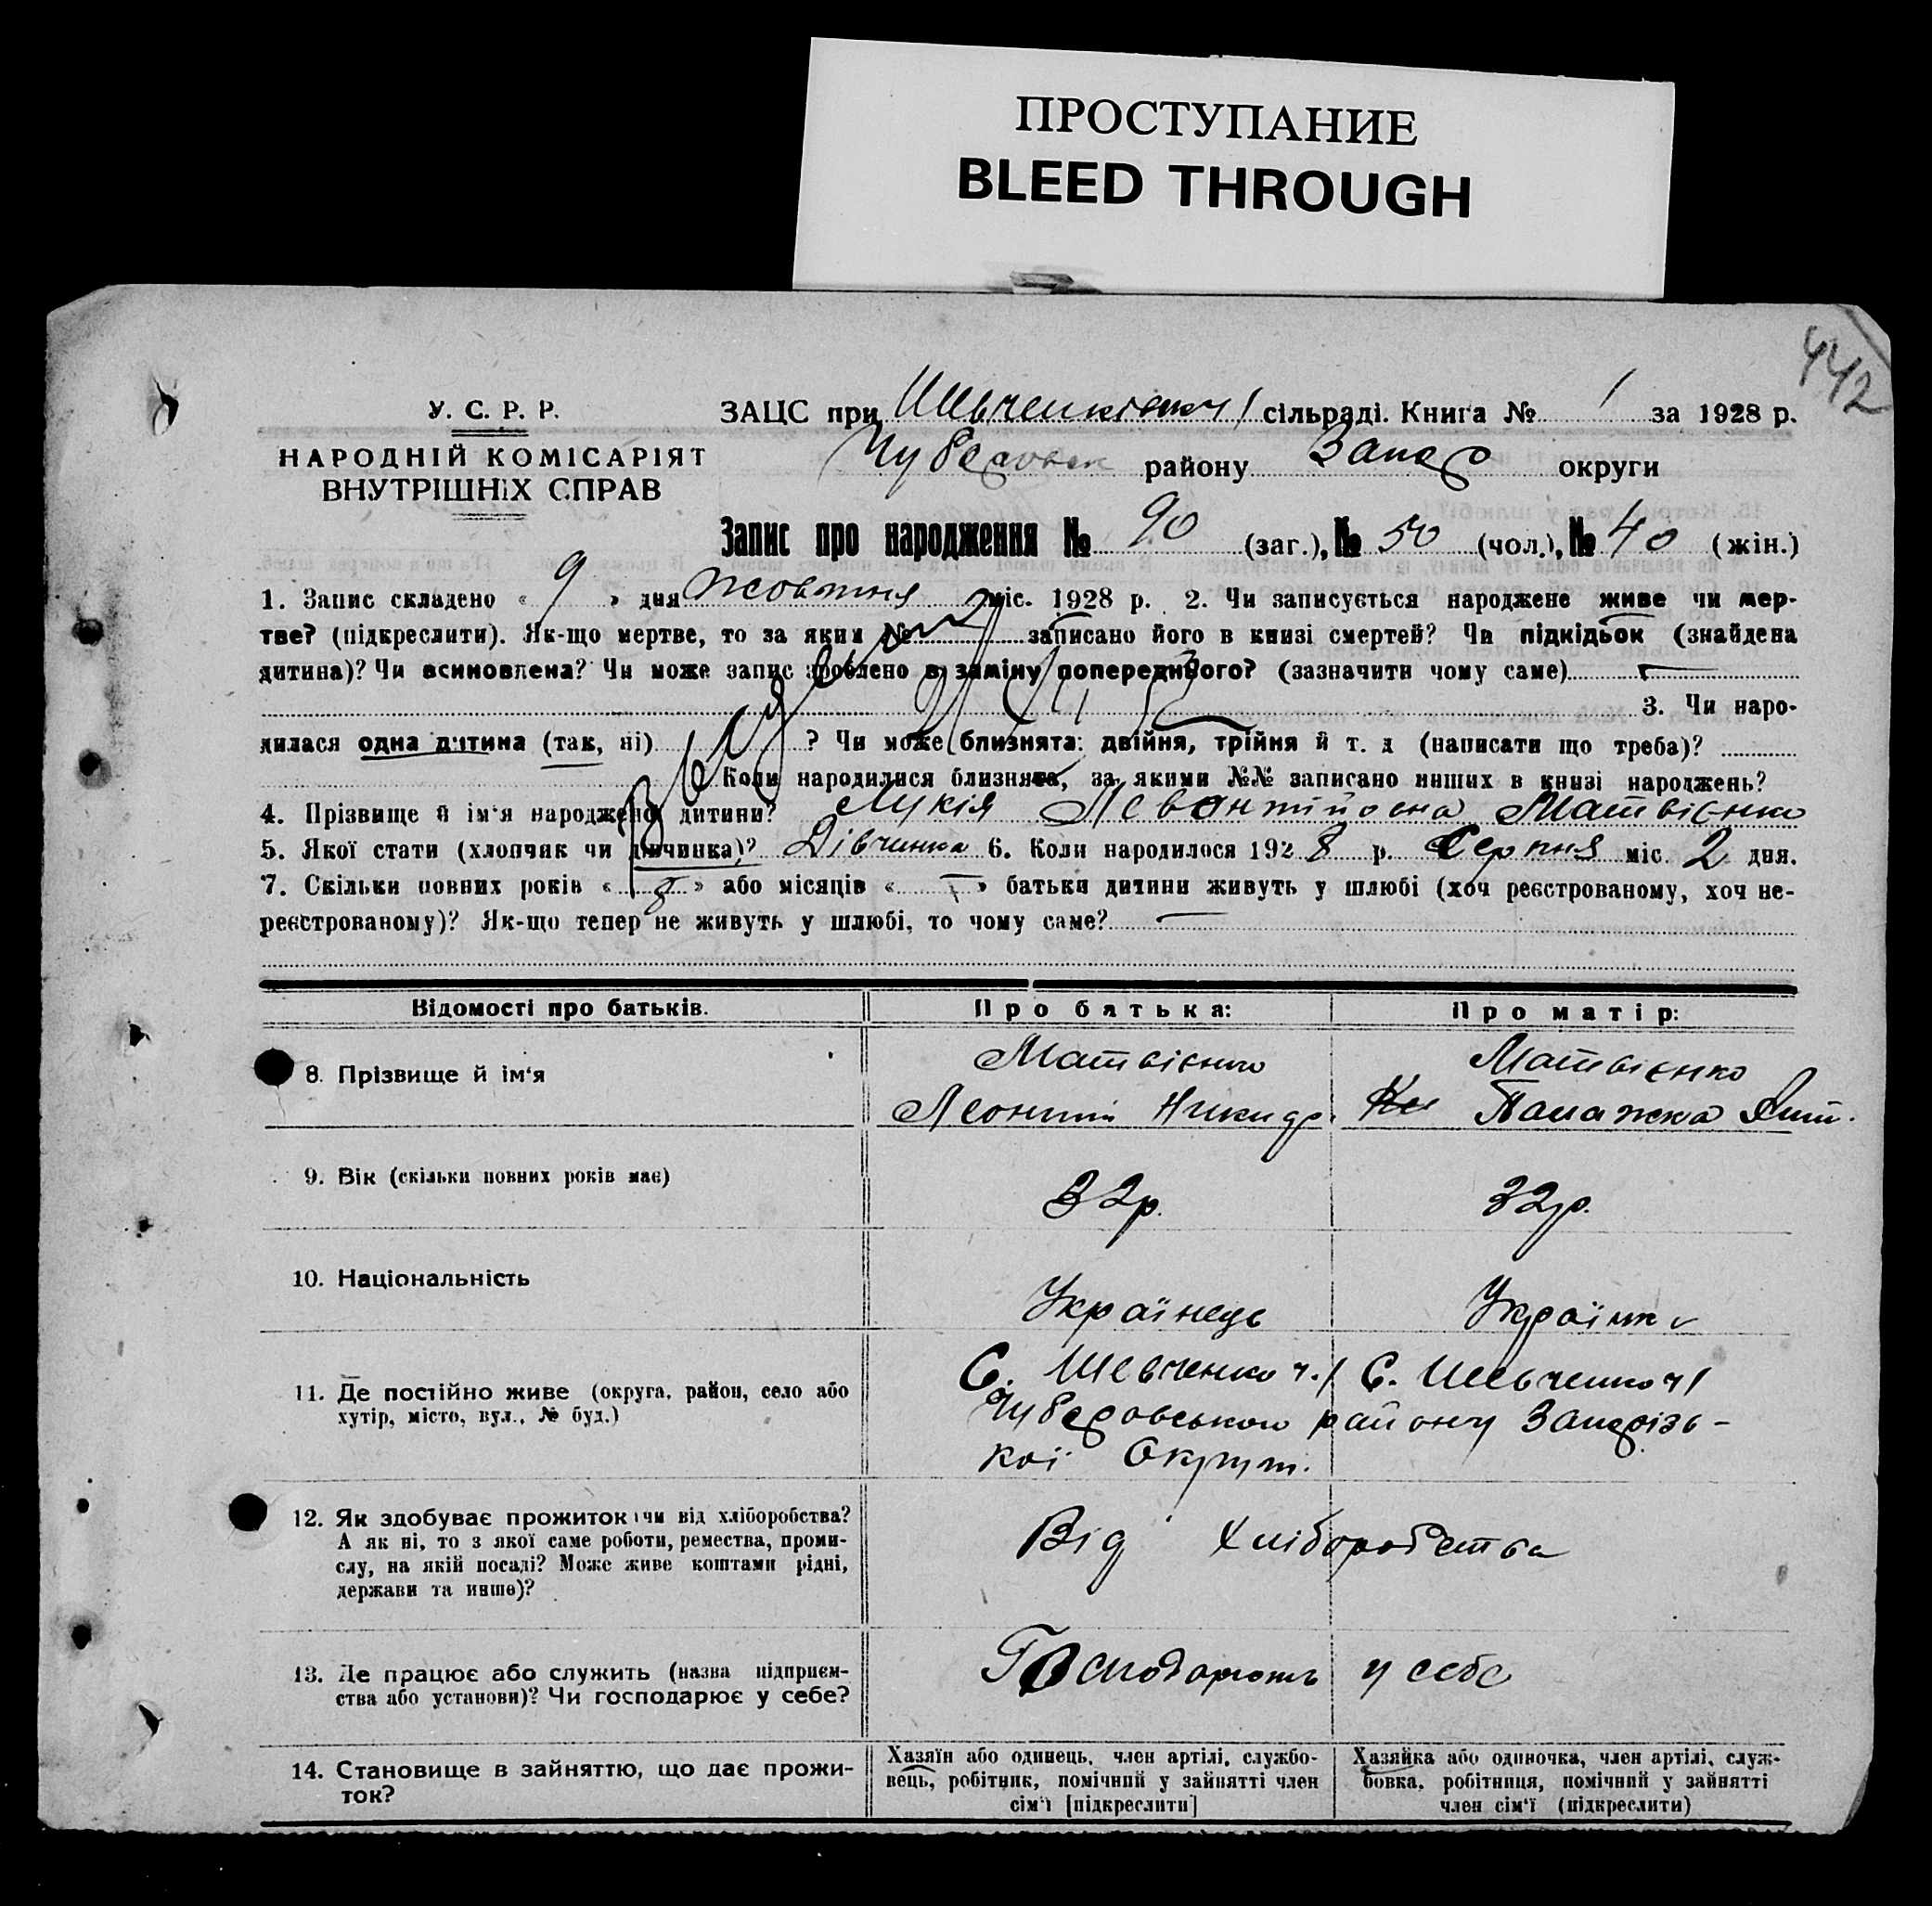 ПРОСТУПАНИЕ
BLEED THROUGH
442
У. С. Р. Р.
НАРОДНІЙ КОМІСАРІЯТ
ВНУТРІШНІХ СПРАВ
ЗАЦС при Шевченківскч 1 сільраді. Книга № 1 за 1928 р.
Чубаровск району Запор округи
Запис про народження № 90 (заг.), № 50 (чол.), № 40 (жін.)
1. Запис складено « 9 » дня жовтня міс. 1928 р. 2. Чи записується народжене живе чи мер-
тве? (підкреслити). Як-що мертве, то за яким № записано його в книзі смертей? Чи підкідьок (знайдена
дитина)? Чи всиновлена? Чи може запис зроблено в заміну попереднього? (зазначити чому саме)
3. Чи наро-
дилася одна дитина (так, ні) ? Чи може близнята: двійня, трійня й т. д (написати що треба)?
Коли народилися близнята, за якими №№ записано инших в книзі народжень?
4. Прізвище й ім'я народженої дитини? Лукія Левонтійовна Матвієнко
5. Якої стати (хлопчик чи дівчинка)? Дівчинка 6. Коли народилося 1928 р. Серпня міс. 2 дня.
7. Скільки повних років « 8 » або місяців « » батьки дитини живуть у шлюбі (хоч реєстрованому, хоч не-
реєстрованому)? Як-що тепер не живуть у шлюбі, то чому саме?
Відомості про батьків. Про батька: Про матір:
8. Прізвище й ім'я Матвієнко Леонтій Никидр. Матвієнко Палажка
9. Вік (скільки повних років має) 32р. 32р.
10. Національність Українець Українк
11. Де постійно живе (округа, район, село або
хутір, місто, вул., № буд.)
С. Шевченко ч.1 С. Шевченко ч1
Чубаровського району Запорізь-
кої Округи.
12. Як здобуває прожиток (чи від хліборобства?
А як ні, то з якої саме роботи, ремества, проми-
слу, на якій посаді? Може живе коштами рідні,
держави та инше)?
Від Хліборобства
13. Де працює або служить (назва підприєм-
ства або установи)? Чи господарює у себе?
Господарюють у себе
14. Становище в зайняттю, що дає прожи-
ток?
Хазяїн або одинець, член артілі, службо-
вець, робітник, помічний у зайнятті член
сім'ї [підкреслити]
Хазяйка або одиночка, член артілі, служ-
бовка, робітниця, помічний у зайнятті
член сім'ї (підкреслити)